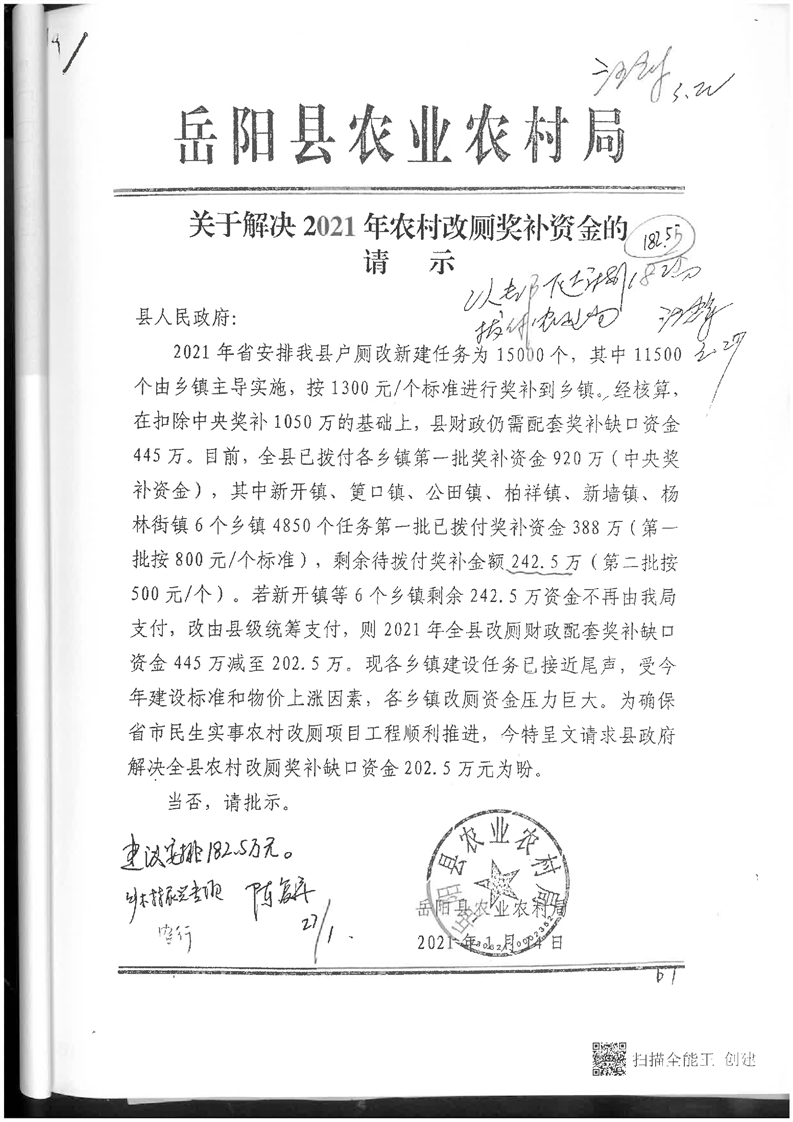 岳阳县农业农村局
关于解决 2021 年农村改厕奖补资金的
请 示
182.5万
县人民政府：
2021 年省安排我县户厕改新建任务为 15000 个，其中 11500
个由乡镇主导实施，按 1300 元/个标准进行奖补到乡镇。经核算，
在扣除中央奖补 1050 万的基础上，县财政仍需配套奖补缺口资金
445 万。目前，全县已拨付各乡镇第一批奖补资金 920 万（中央奖
补资金），其中新开镇、筻口镇、公田镇、柏祥镇、新墙镇、杨
林街镇 6 个乡镇 4850 个任务第一批已拨付奖补资金 388 万（第一
批按 800 元/个标准），剩余待拨付奖补金额 242.5 万（第二批按
500 元/个）。若新开镇等 6 个乡镇剩余 242.5 万资金不再由我局
支付，改由县级统筹支付，则 2021 年全县改厕财政配套奖补缺口
资金 445 万减至 202.5 万。现各乡镇建设任务已接近尾声，受今
年建设标准和物价上涨因素，各乡镇改厕资金压力巨大。为确保
省市民生实事农村改厕项目工程顺利推进，今特呈文请求县政府
解决全县农村改厕奖补缺口资金 202.5 万元为盼。
当否，请批示。
建议安排182.5万元。
岳阳县农业农村局
岳阳县农业农村局
2021 年 1 月 14 日
61
扫描全能王 创建